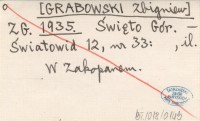 [GRABOWSKI Zbigniew]
Z G. 1935. Święto Gór. –
Światowid 12, nr 33: , il.
W Zakopanem.